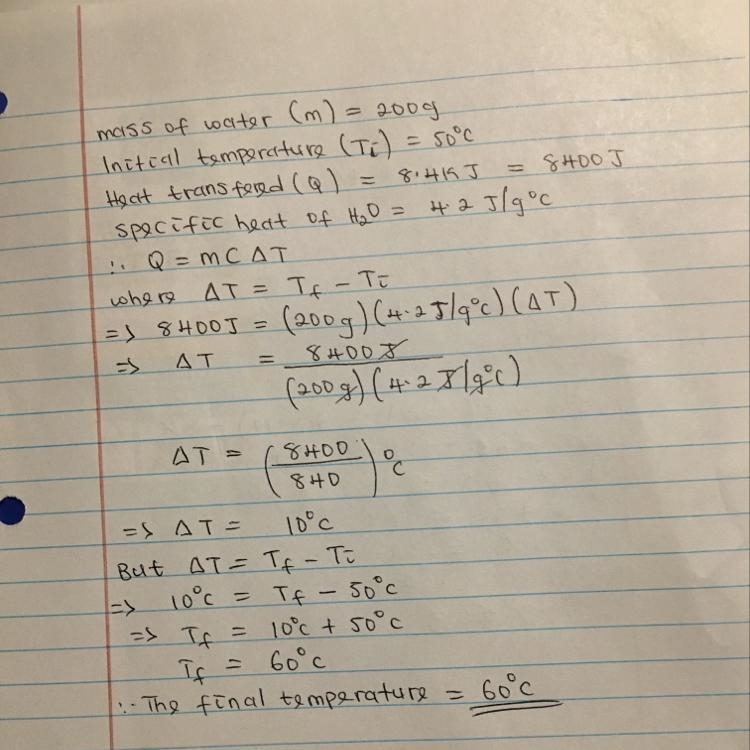 mass of water (m) = 200g
Initial temperature (Ti) = 50°C
Heat transfered (Q) = 8.4KJ = 8400J
specific heat of H₂O = 4.2 J/g°C
∴ Q = mCΔT
where ΔT = Tf - Ti
=> 8400J = (200g)(4.2J/g°C)(ΔT)
=> ΔT = 8400J
(200g)(4.2J/g°C)
ΔT = (8400/840)°C
=> ΔT = 10°C
But ΔT = Tf - Ti
=> 10°C = Tf - 50°C
=> Tf = 10°C + 50°C
Tf = 60°C
∴ The final temperature = 60°C